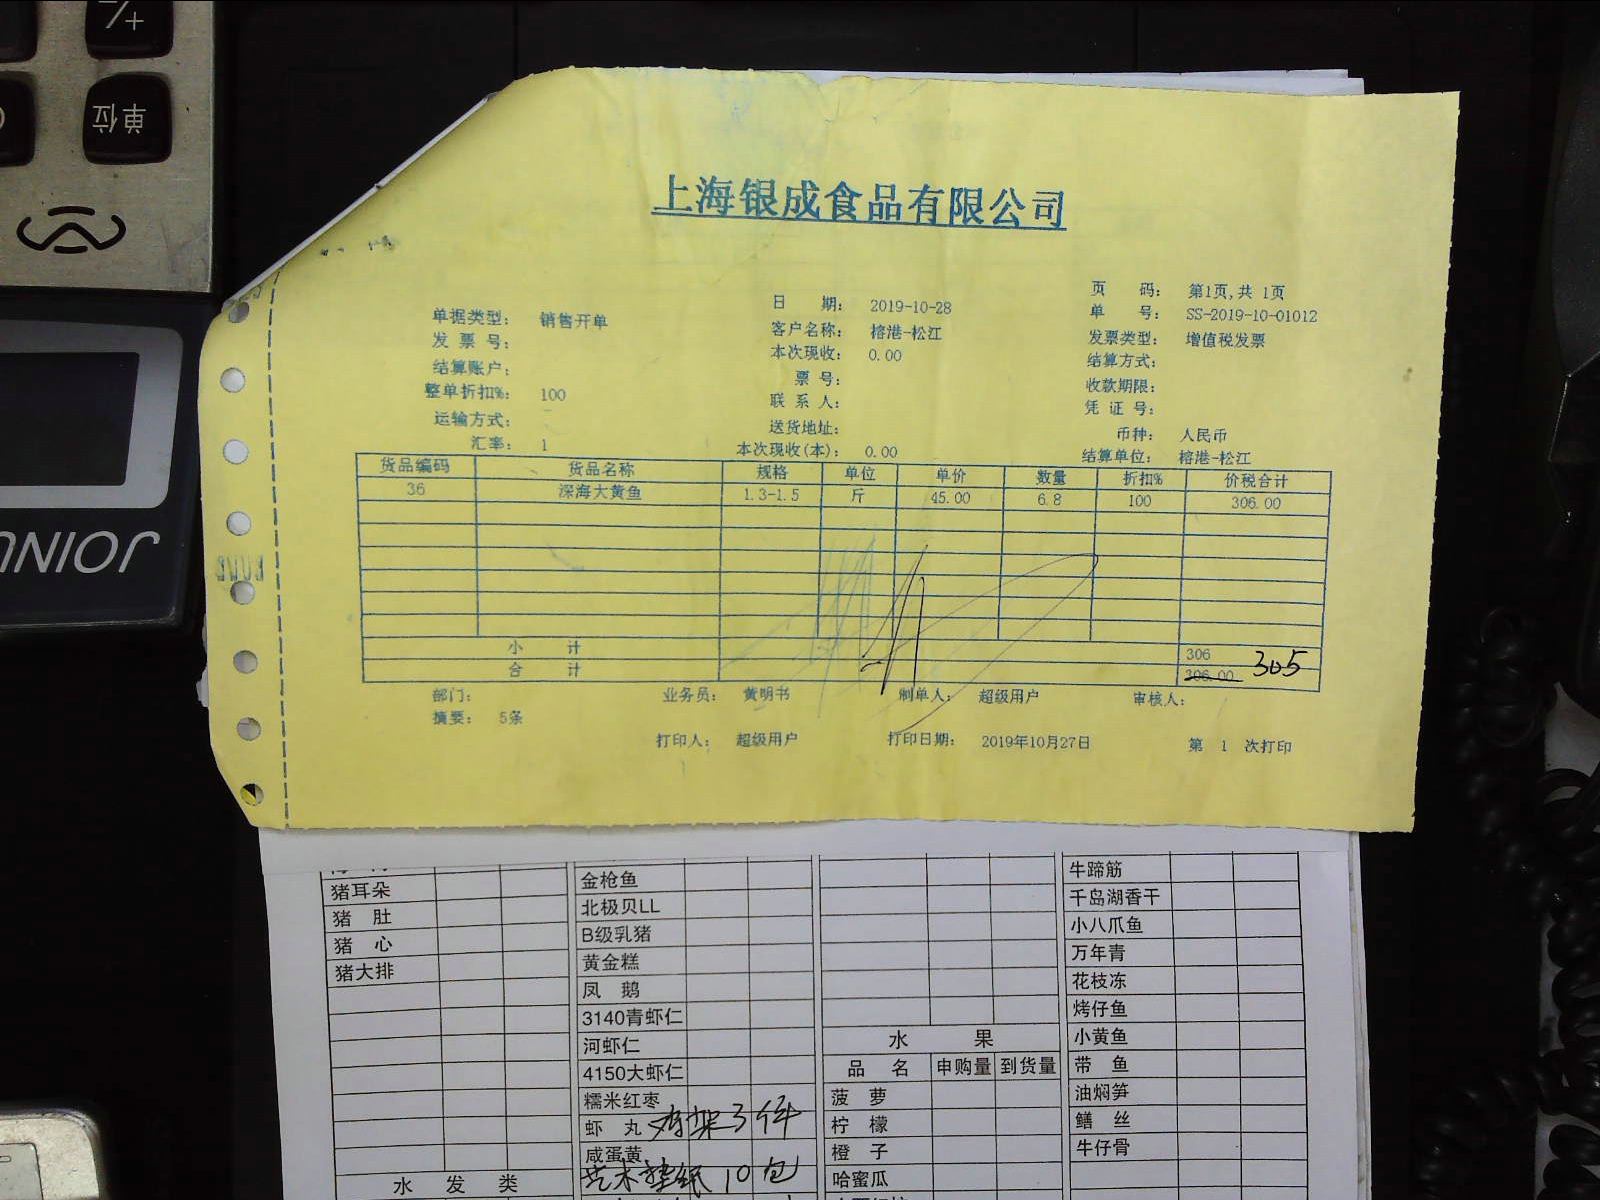 +/-
单位
JOINU
上海银成食品有限公司
单据类型： 销售开单
日 期： 2019-10-28
页 码： 第1页,共 1页
发 票 号：
客户名称： 榕港-松江
单 号： SS-2019-10-01012
结算账户：
本次现收： 0.00
发票类型： 增值税发票
整单折扣%： 100
票 号：
结算方式：
运输方式：
联 系 人：
收款期限：
汇率： 1
送货地址：
凭 证 号：
本次现收(本)： 0.00
币种： 人民币
结算单位： 榕港-松江
货品编码 货品名称 规格 单位 单价 数量 折扣% 价税合计
36 深海大黄鱼 1.3-1.5 斤 45.00 6.8 100 306.00
小 计 306
合 计 306.00 305
部门： 业务员： 黄明书 制单人： 超级用户 审核人：
摘要： 5条
打印人： 超级用户 打印日期： 2019年10月27日 第 1 次打印
猪耳朵
猪 肚
猪 心
猪大排
水 发 类
金枪鱼
北极贝LL
B级乳猪
黄金糕
凤 鹅
3140青虾仁
河虾仁
4150大虾仁
糯米红枣
虾 丸 鸡架3件
咸蛋黄
艺术垫纸 10包
水 果
品 名 申购量 到货量
菠 萝
柠 檬
橙 子
哈蜜瓜
牛蹄筋
千岛湖香干
小八爪鱼
万年青
花枝冻
烤仔鱼
小黄鱼
带 鱼
油焖笋
鳝 丝
牛仔骨